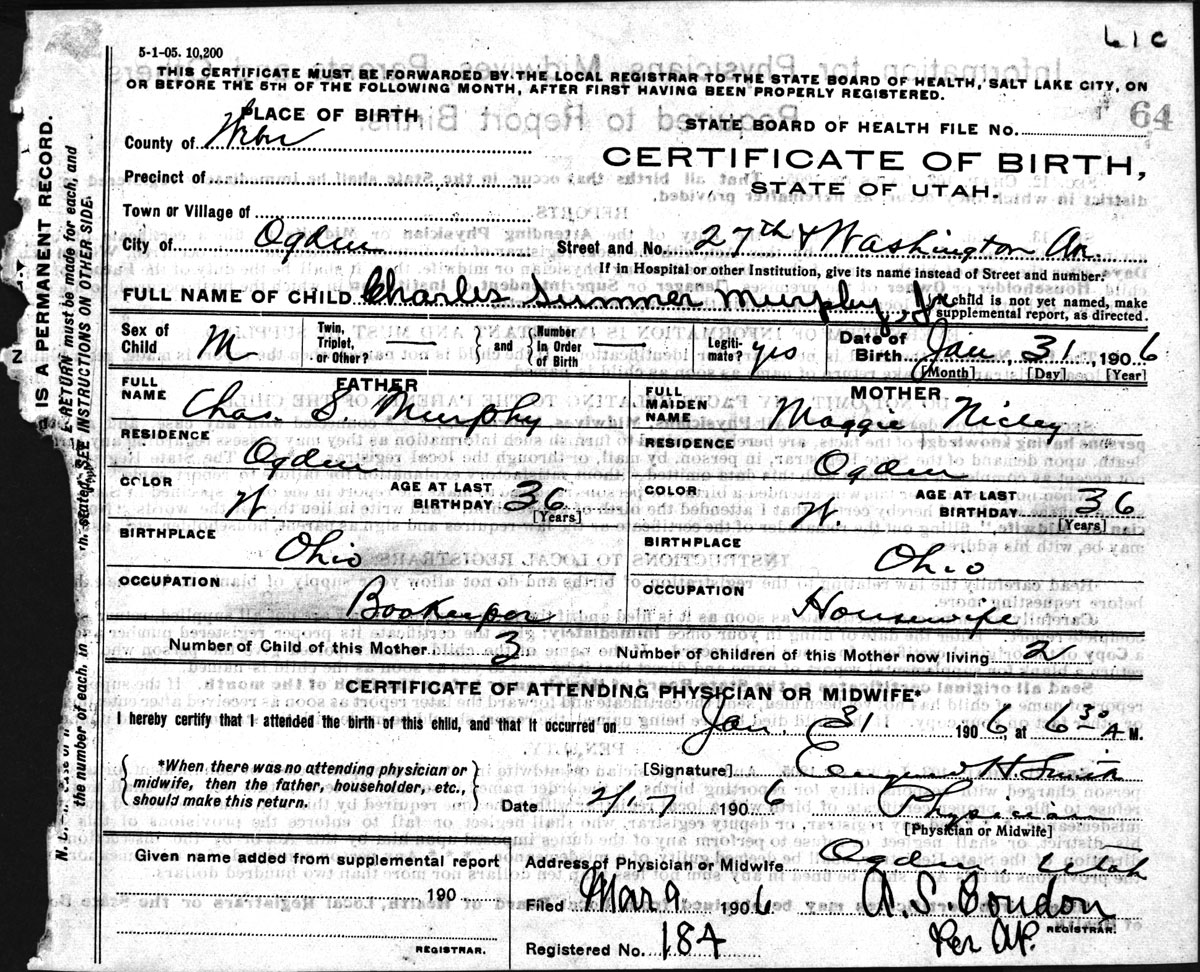 61C
5-1-05. 10,200
THIS CERTIFICATE MUST BE FORWARDED BY THE LOCAL REGISTRAR TO THE STATE BOARD OF HEALTH, SALT LAKE CITY, ON
OR BEFORE THE 5TH OF THE FOLLOWING MONTH, AFTER FIRST HAVING BEEN PROPERLY REGISTERED.
64
PLACE OF BIRTH
STATE BOARD OF HEALTH FILE NO.
County of
CERTIFICATE OF BIRTH,
Precinct of
STATE OF UTAH.
Town or Village of
City of Ogden Street and No. 27th & Washington Av.
If in Hospital or other Institution, give its name instead of Street and number.
FULL NAME OF CHILD Charles Sumner Murphy, Jr
If child is not yet named, make
supplemental report, as directed.
Sex of Child M Twin, Triplet, or Other? — and Number in Order of Birth — Legiti- mate? yes Date of Birth Jan, 31, 1906
[Month] [Day] [Year]
FATHER
FULL NAME Chas. S. Murphy
RESIDENCE
Ogden
COLOR W. AGE AT LAST BIRTHDAY 36
[Years]
BIRTHPLACE
Ohio
OCCUPATION
Bookeeper
MOTHER
FULL MAIDEN NAME Maggie
RESIDENCE
Ogden
COLOR W. AGE AT LAST BIRTHDAY 36
[Years]
BIRTHPLACE
Ohio
OCCUPATION
Housewife
Number of Child of this Mother 3 Number of children of this Mother now living 2
CERTIFICATE OF ATTENDING PHYSICIAN OR MIDWIFE*
I hereby certify that I attended the birth of this child, and that it occurred on Jan, 31 1906 at 6 30 A M.
*When there was no attending physician or
midwife, then the father, householder, etc.,
should make this return.
[Signature] H. Smith
Date 2/17 1906 Physician
[Physician or Midwife]
Given name added from supplemental report
190
REGISTRAR.
Address of Physician or Midwife Ogden Utah
Filed Mar 9 1906 A. S. Condon
REGISTRAR.
Registered No. 184 Per AP.
IS A PERMANENT RECORD.
RETURN must be made for each, and
SEE INSTRUCTIONS ON OTHER SIDE.
the number of each, in